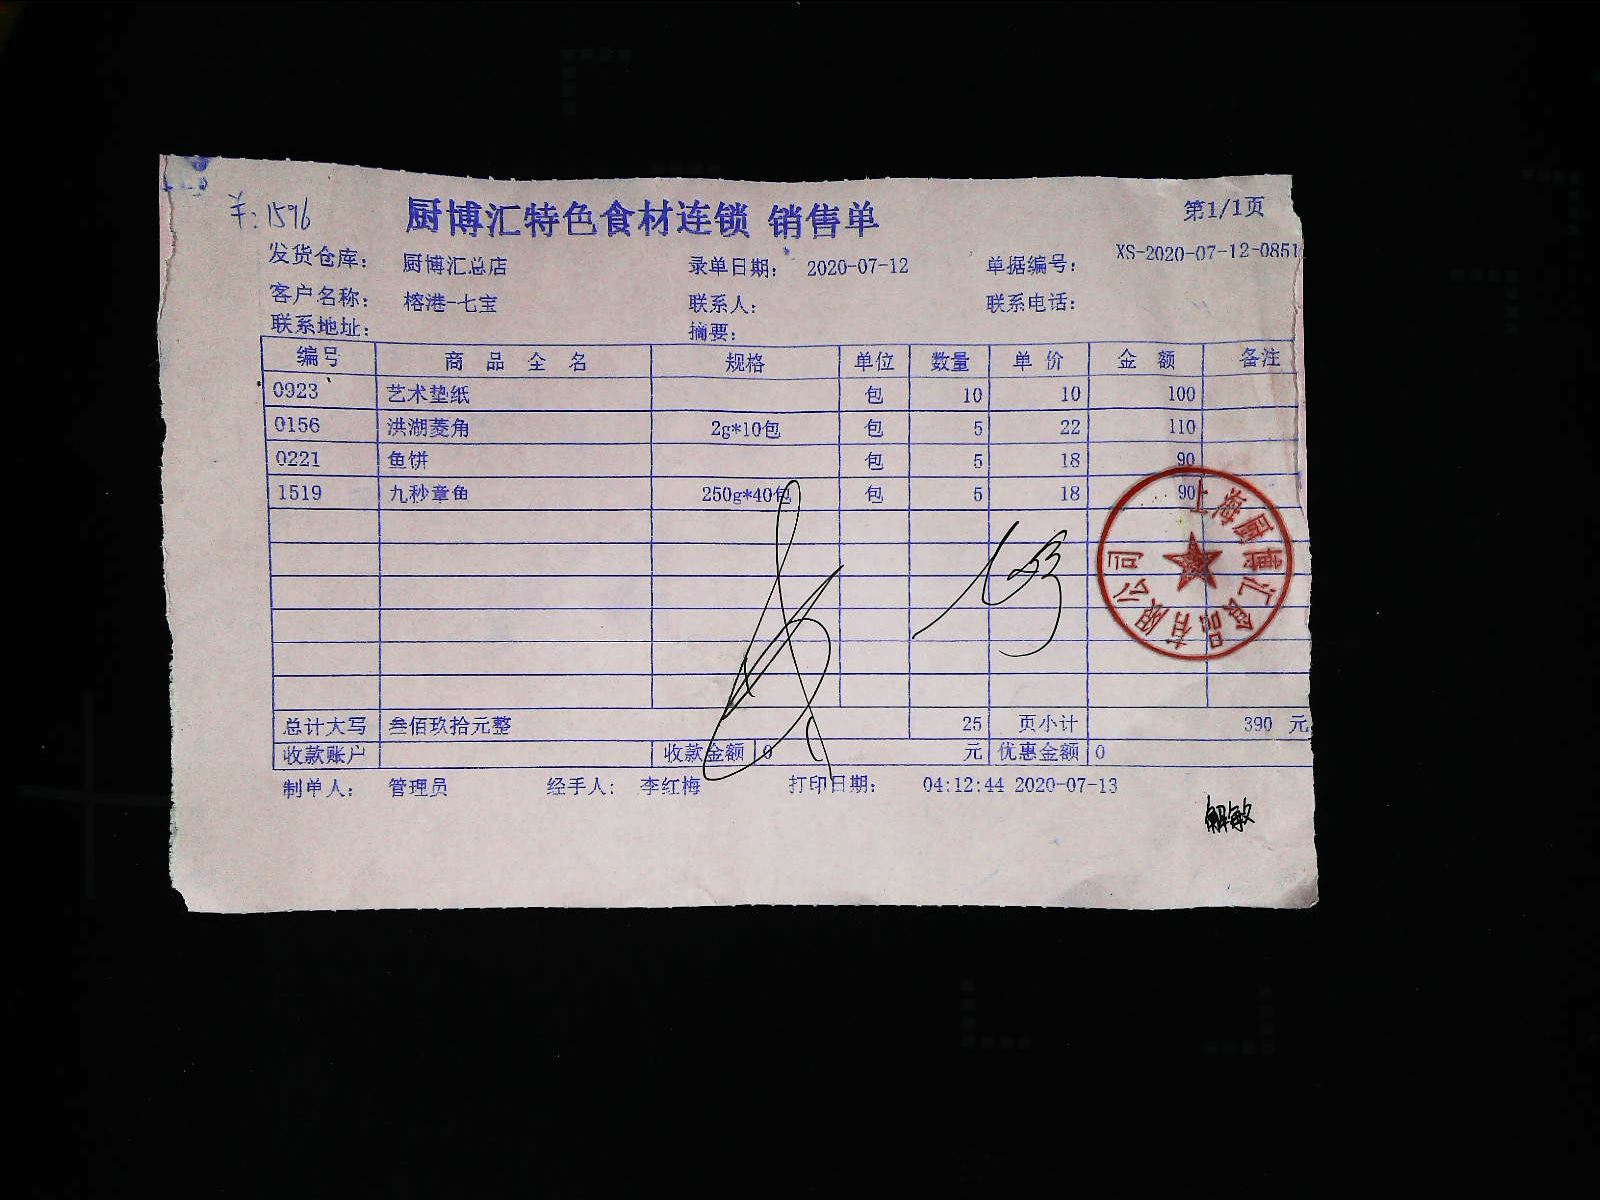 羊:1596
厨博汇特色食材连锁 销售单 第1/1页
发货仓库: 厨博汇总店 录单日期: 2020-07-12 单据编号: XS-2020-07-12-0851
客户名称: 榕港-七宝 联系人: 联系电话:
联系地址: 摘要:
编号 商品全名 规格 单位 数量 单价 金额 备注
0923 艺术垫纸 包 10 10 100
0156 洪湖菱角 2g*10包 包 5 22 110
0221 鱼饼 包 5 18 90
1519 九秒章鱼 250g*40包 包 5 18 90
上海厨博汇食品有限公司
总计大写 叁佰玖拾元整 25 页小计 390 元
收款账户 收款金额 0 元 优惠金额 0
制单人: 管理员 经手人: 李红梅 打印日期: 04:12:44 2020-07-13
解敏